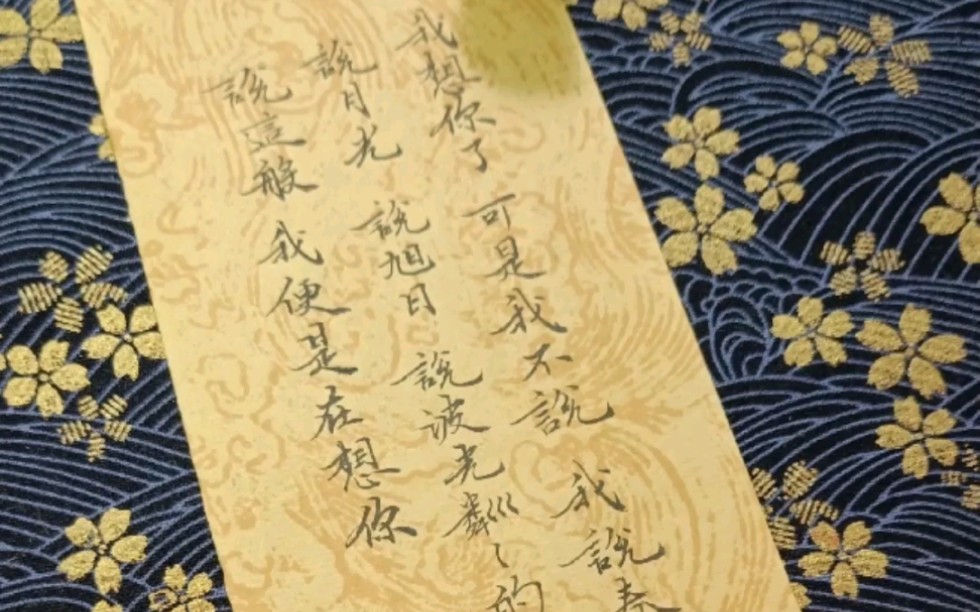 我想你了 可是我不說 我說
說月光 說旭日 說波光粼〻的
說這般 我便是在想你